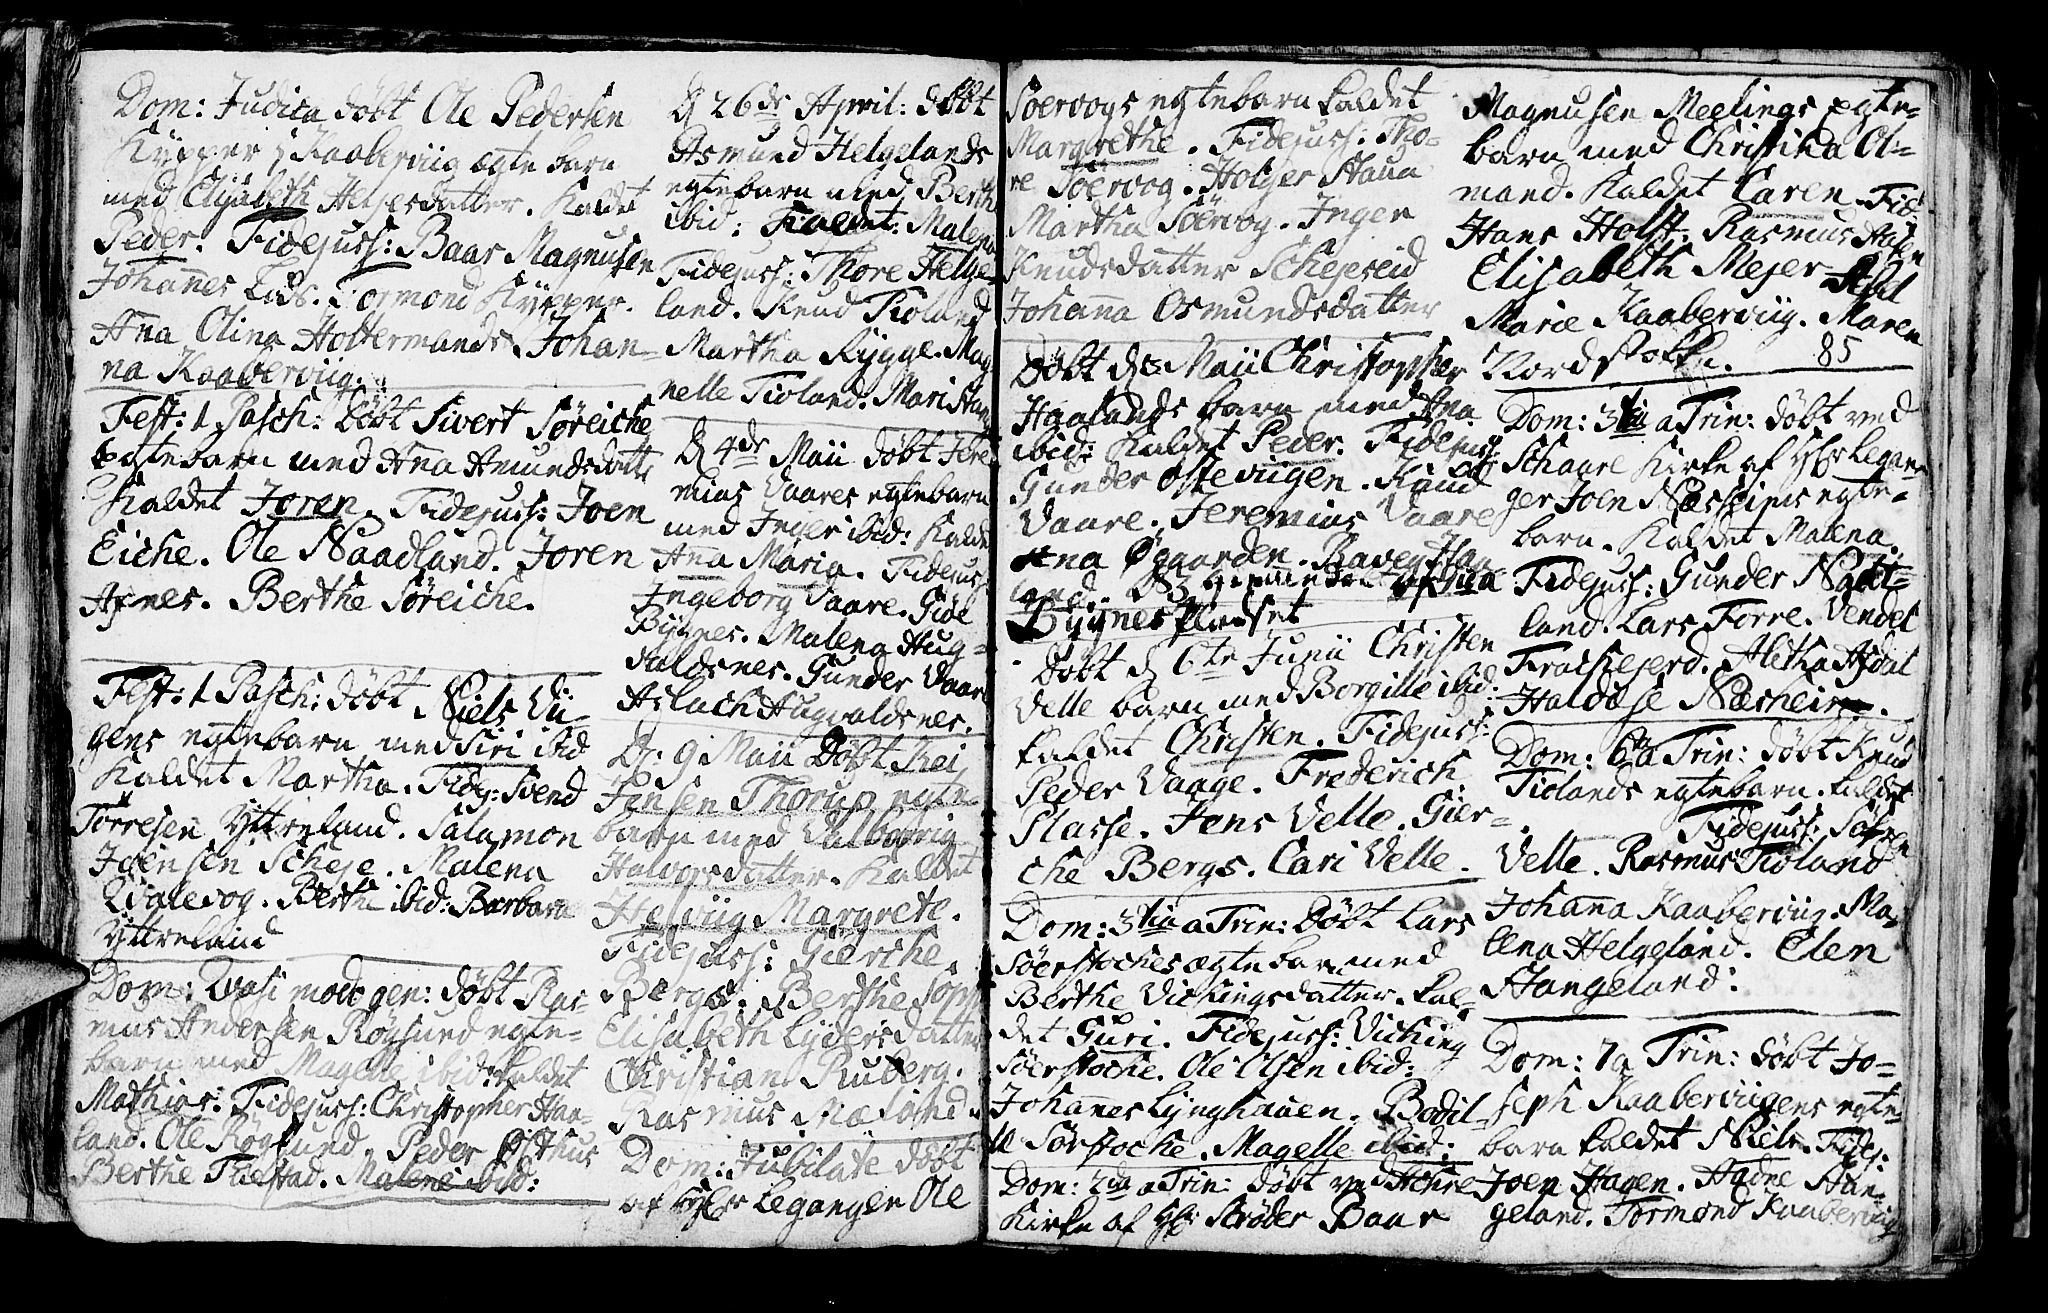 Dom: Judica döbt Ole Pedersen
Kÿpper i Kaaberviig ægte barn
med Elisabeth Helgesdatter. Kaldet
Peder. Fidejuss: Baar Magnusen
Johañes Lads. Tormond Kÿpper.
Aña Olina Holtermands. Johan-
na Kaaberviig.
Fest: 1 Pasch: döbt Sivert Söreiche
egtebarn med Aña Amundsdatte
Kaldet Joren. Fidejuss: Joen
Eiche. Ole Naadland. Joren
Afnes. Berthe Söreiche.
Fest: 1 Pasch: döbt Niels Vii-
gens egtebarn med Siri ibid
Kaldet Martha. Fidej: Svend
Törresen Yttreland. Salamon
Joensen Scheje. Malena
Qvalevog. Berthe ibid: Barbara
Yttreland
Dom: Qvasi modo gen: döbt Ras-
mus Andersen Röгsund egte-
barn med Magelle ibid: kaldet
Mathias. Fidejuss: Christopher Haa-
land. Ole Rögsund. Peder Østhus
Berthe Tiestad. Malene ibid:
D 26de April: döbt
Asmund Helgelands
egtebarn med Berth
ibid: Kaldet Malena
Fidejuss: Thore Helge-
land. Knud Tioland
Martha Rygge. Mag
nelle Tioland. Mari Hang
D 4de Maii döbt Jere
mias Vaares egtebarn
med Inger ibid: Kalde
Aña Maria. Fidejuss:
Ingeborg Vaare. Gide
Bygnes. Malena Hug-
valdsnes. Gunder Vaare
Aslach Hugvaldsnes.
D: 9 Maii Döbt Kei
Jensen Thorup egte-
barn med Valborrig
Halvorsdatter. Kaldet
Helviig Margrete.
Fidejuss: Gierche
Bergs. Berthe Sopp
Elisabeth Lÿdersdatter
Christian Ruberg.
Rasmus Mæland
Dom: Jubilate döbt
af Hr Leganger Ole
Soervogs egtebarn kaldet
Margrethe. Fidejuss: Tho-
re Söervog. Holger Staua
Martha Söervog. Inger
Knudsdatter Schejeseid
Johaña Osmundsdatter
Döbt d 3 Maii Christopher
Haalands barn med Aña
ibid: Kaldet Peder. Fidejuss
Gunder Osteviigen. Knud
Vaare. Jeremias Vaare
Aña Øgaarden.
land.
Bygnes Pladset
Döbt d 6te Junii Christen
Velle barn med Borgille ibid:
kaldet Christen. Fidejuss:
Peder Vaage. Frederich
Plasse. Jens Velle. Gier-
che Bergs. Cari Velle.
Dom: 3tia a Trin: Döbt Lars
Söerstoches ægte barn med
Berthe Vichingsdatter. kal-
det Guri. Fidejuss: Viching
Söerstoche. Ole Olsen ibid:
Johañes Lynghauen. Bodil-
le Sörstoche. Magelle ibid:
Dom: 2da a Trin: döbt ved Achre
Kirke af Hr Ströder Baar
Magnusen Meelings egte-
barn med Christina Ol-
mand. kaldet Caren. Fid
Hans Holst. Rasmus Aasen
Elisabeth Mejer Abel
Marie Kaaberviig. Maren
Nordstokke. 85
Dom: 3tia a Trin: döbt ved
Schaare Kirke af Hr Legan-
ger Joen Næsseims egte-
barn. Kaldet Malena.
Fidejuss: Gunder Nadt-
land. Lars Forre. Vendel
Frackejerd. Aletha Afdal
Haldose Næsheim.
Dom: 6ta Trin: döbt Knud
Tiolands egtebarn. kaldet
Fidejuss: Sören
Velle. Rasmus Tioland
Johaña Kaaberviig. Ma-
lena Helgeland. Elen
Stangeland:
Dom: 7a Trin: döbt Jo-
seph Kaaberviigens egte-
barn kaldet Niels. Fidej:
Joen Hagen. Hadne Stan-
geland. Tormond Kaaberviig